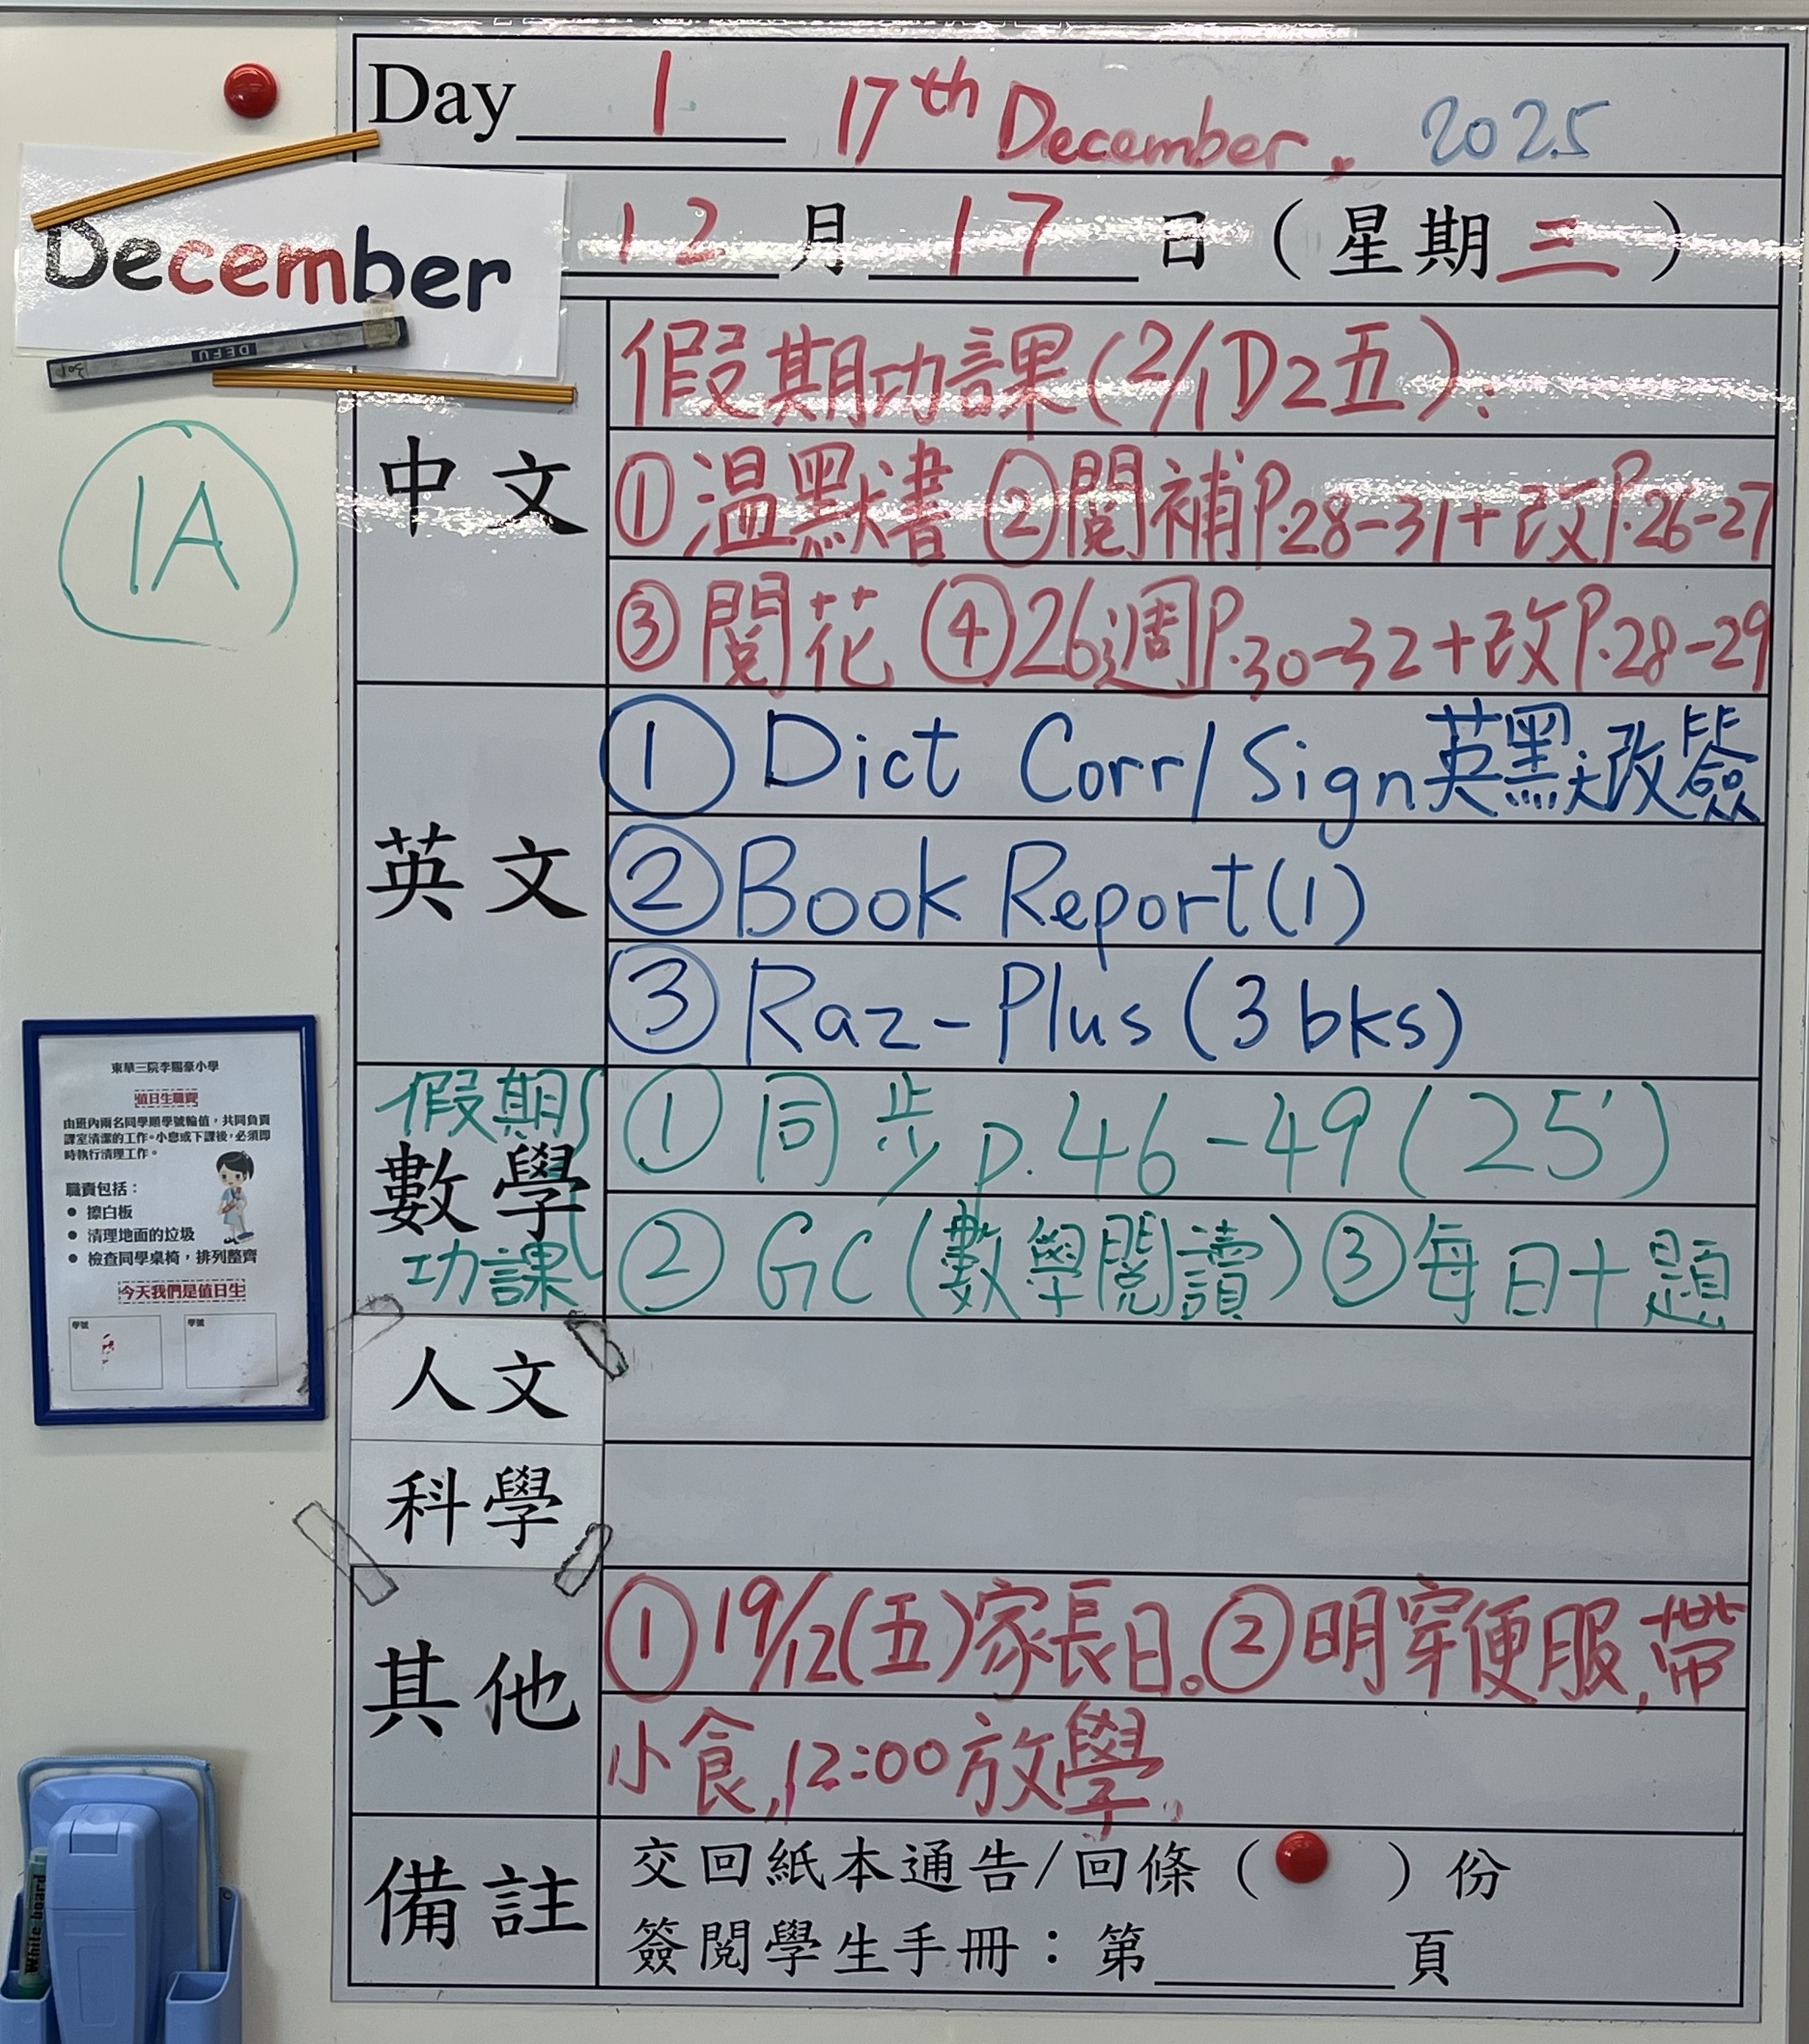 Day 1 17th December, 2025
December
12 月 17 日 (星期三)
DEFU
1A
中文
假期功課(2/1D2五):
①溫默書 ②閱補P.28-31+改P.26-27
③閱花 ④26週P.30-32+改P.28-29
英文
① Dict Corr/Sign英默改簽
② Book Report(1)
③ Raz-Plus (3 bks)
假期
數學
功課
① 同步p.46-49(25')
② GC(數學閱讀)③每日十題
人文
科學
其他
①19/12(五)家長日。②明穿便服,帶
小食,12:00放學,
備註
交回紙本通告/回條( )份
簽閱學生手冊:第 頁
東華三院李賜豪小學
值日生職責
由班內兩名同學順學號輪值,共同負責
課室清潔的工作。小息或下課後,必須即
時執行清理工作。
職責包括:
● 擦白板
● 清理地面的垃圾
● 檢查同學桌椅,排列整齊
今天我們是值日生
學號 學號
White board